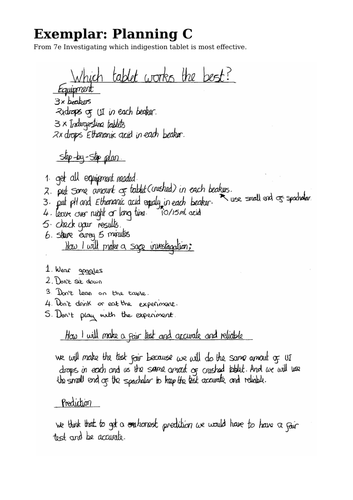 Exemplar: Planning C
From 7e Investigating which indigestion tablet is most effective.
Which tablet works the best?
Equipment
3x beakers
2xdrops of UI in each beaker.
3 x Indergestion tablets
2x drops Ethanonic acid in each beaker.
step-by-step plan
1. get all equipment needed.
2. put same amount of tablet (crushed) in each beakers.
use small end of spachelar
3. put pH and Ethanonic acid equaly in each beaker.
10/15ml acid
4. leave over night or long time.
5. check your results.
6. stare every 5 minutes
How I will make a safe investigation:
1. Wear goggles
2. Don't sit down
3. Don't lean on the table.
4. Don't drink or eat the experiment.
5. Don't play with the experiment.
How I will make a fair test and accurate and reliable
we will make the test fair because we will do the same amount of UI
drops in each and us the same amont of crushed tablet. And we will use
the small end of the spachelar to keep the test accurate and reliable.
Prediction
we think that to get a honest prediction we would have to have a fair
test and be accurate.